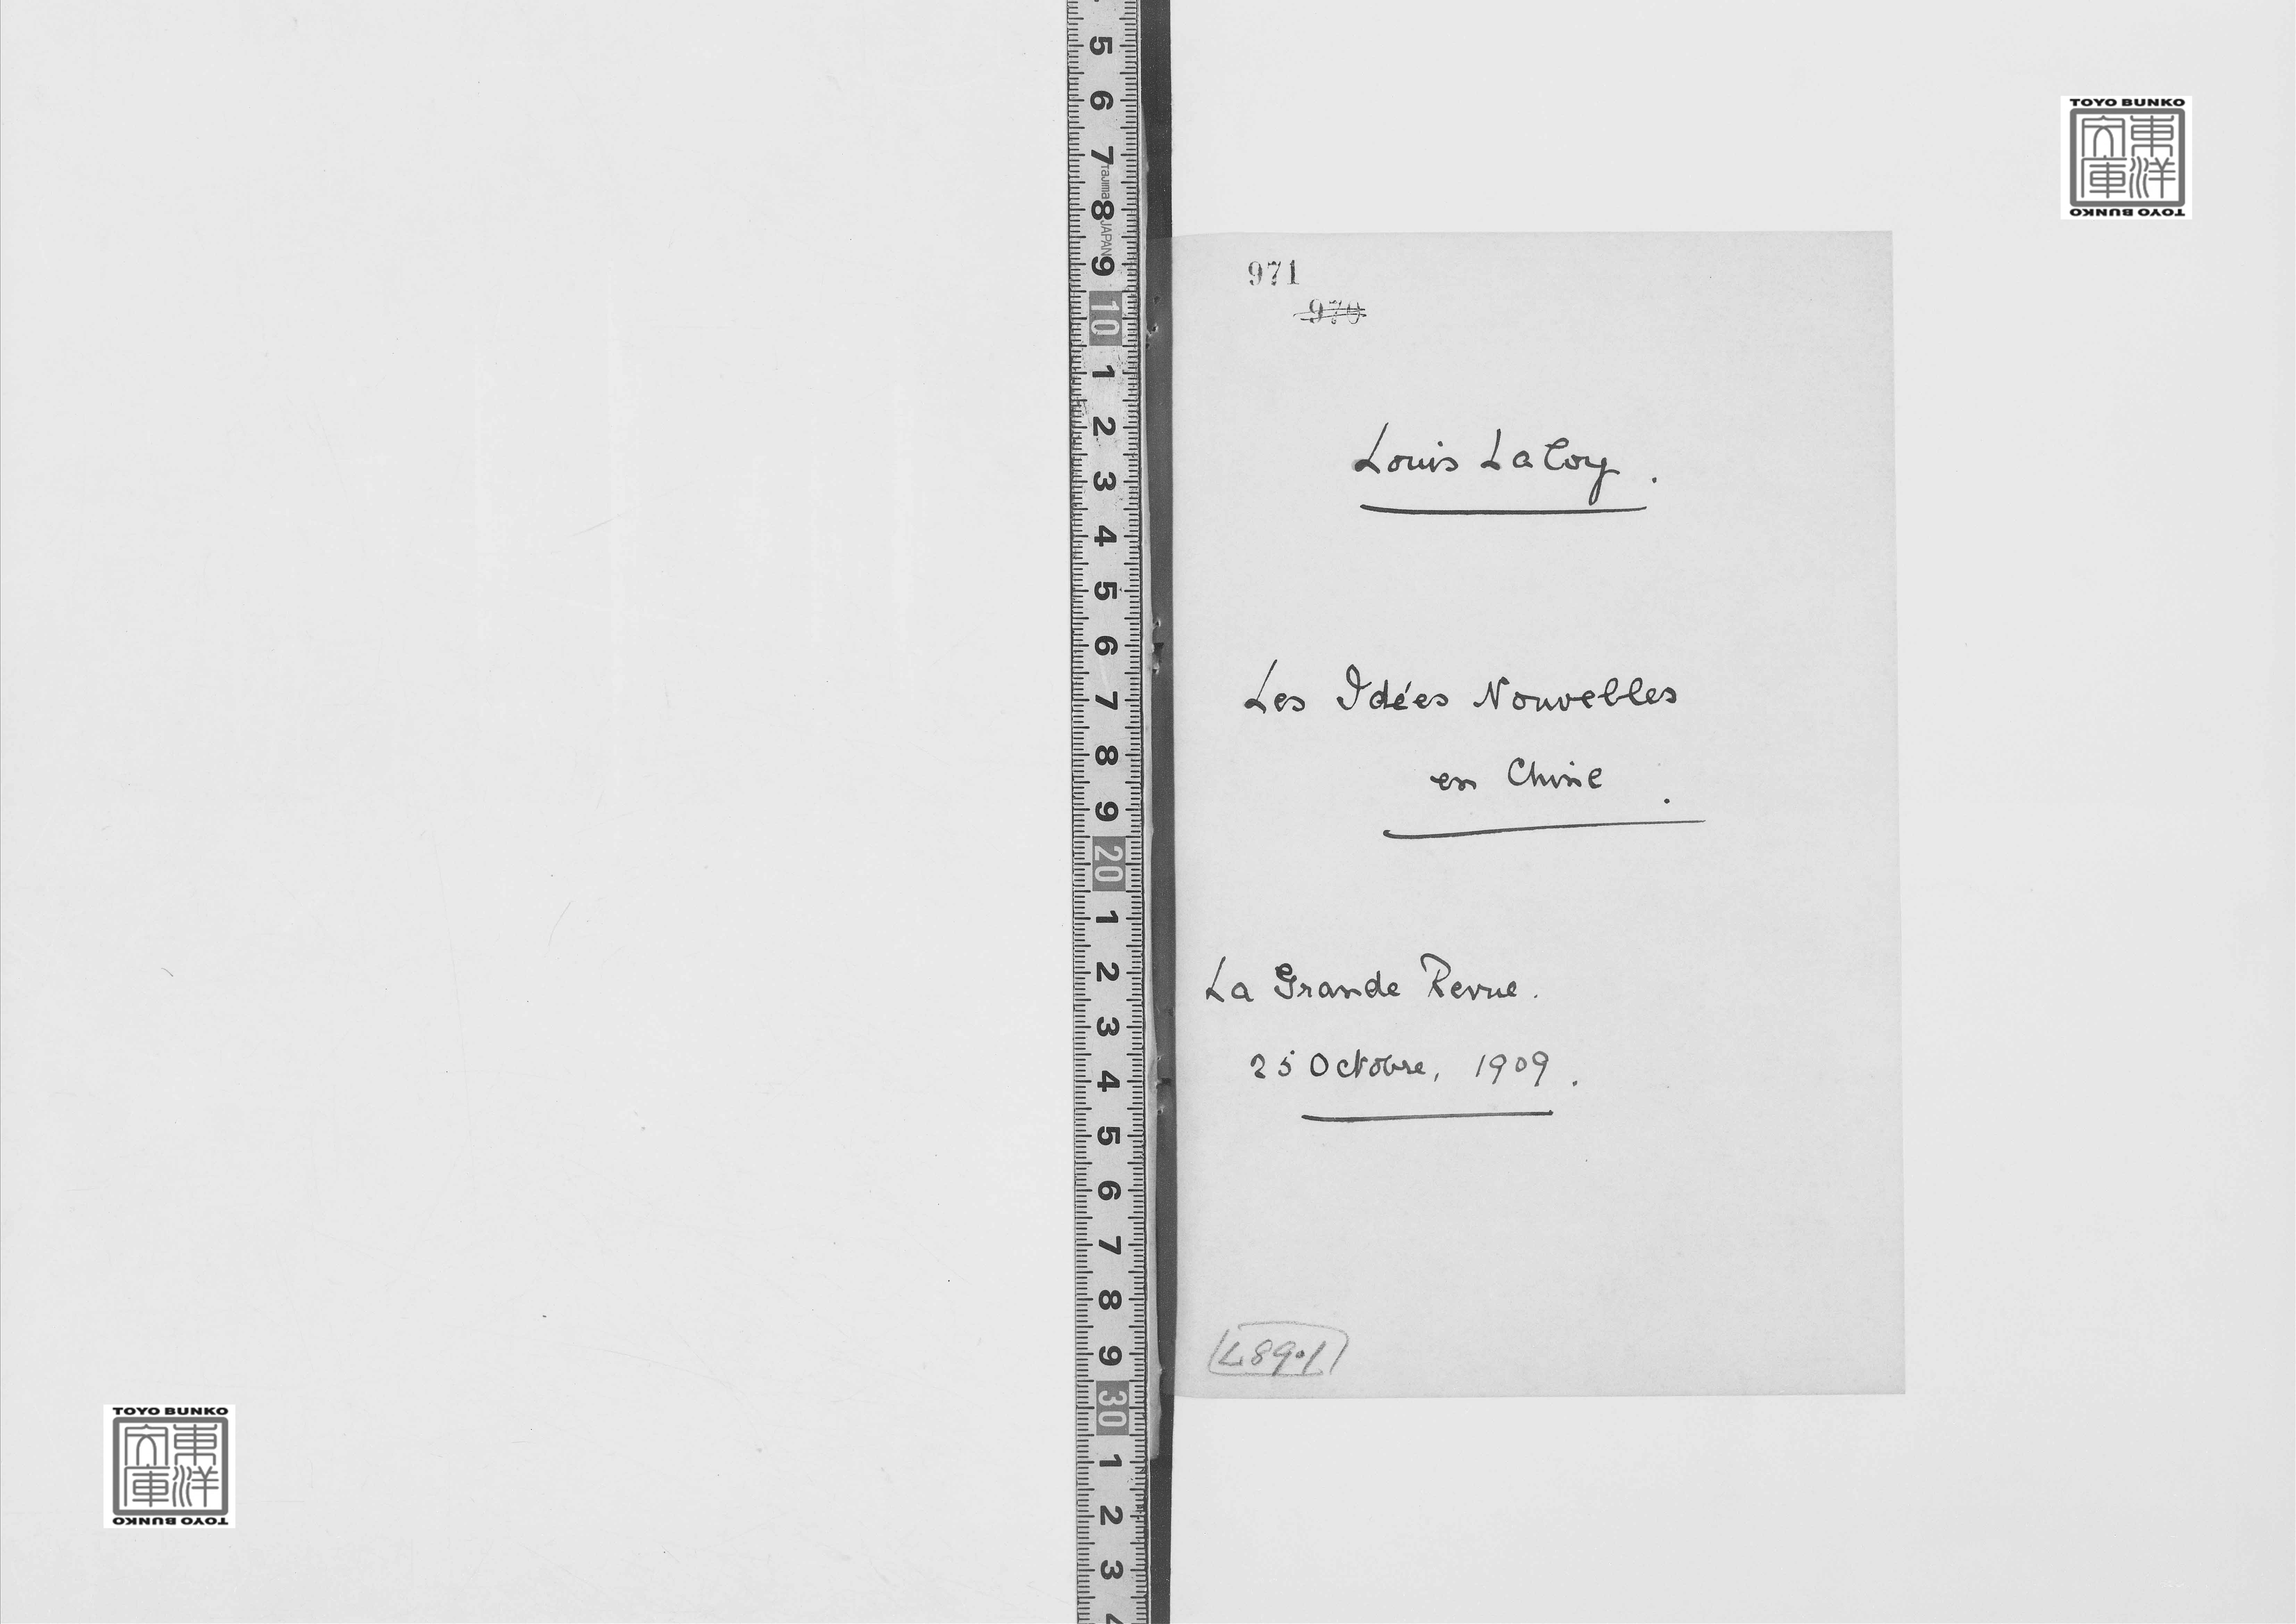 971
970
Louis Laloy.
Les Idées Nouvelles
en Chine.
La Grande Revue.
25 Octobre, 1909.
TOYO BUNKO
東洋
文庫
TOYO BUNKO
TOYO BUNKO
東洋
文庫
TOYO BUNKO
5
6
7
Tajima
8
JAPAN
9
10
1
2
3
4
5
6
7
8
9
20
1
2
3
4
5
6
7
8
9
30
1
2
3